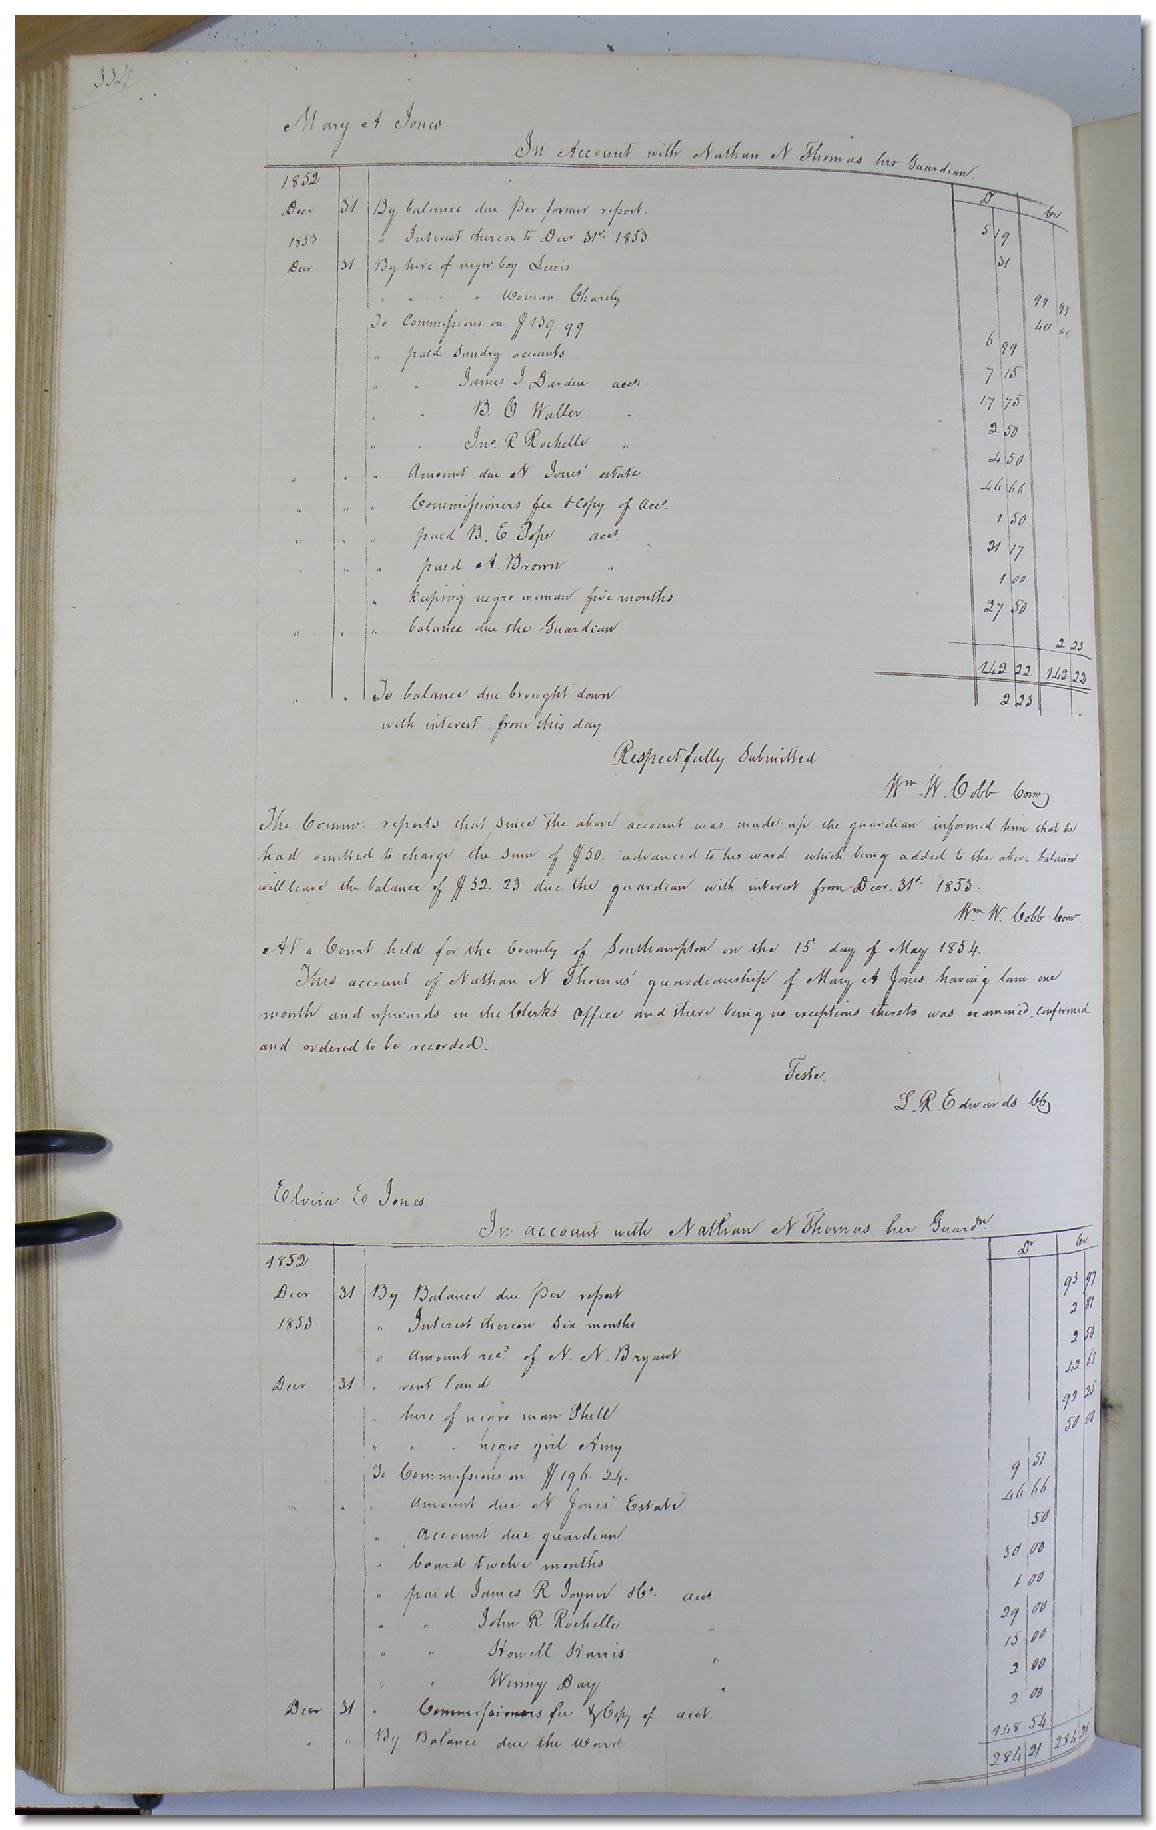 334
Mary A Jones
In Account with Nathan N Thomas his Guardian.
Dr Cr
1852
Decr 31 By balance due per former report. 5 19
1853 " Interest thereon to Decr 31st. 1853 31
Decr 31 By hire of negro boy Lewis 99 99
" " " " Woman Charity 40 00
To Commissions on $139.99 6 99
" paid Sundry accounts 7 15
" " James J Darden acct. 17 75
" " B. C Waller " 2 50
" " Jno. R Rochelle " 4 50
" " " Amount due N Jones' estate 46 66
" " " Commissioners fee & Copy of acct. 1 50
" " " paid B. E Pope acct. 21 17
" " " paid A. Brown " 1 00
" keeping negro woman five months 27 50
" " " balance due the Guardian 2 23
142 22 142 22
" " To balance due brought down 2 23
with interest from this day
Respectfully Submitted
Wm. W. Cobb Comr
The Commr. reports that since the above account was made up the guardian informed him that he
had omitted to charge the sum of $50. advanced to his ward which being added to the above balance
will leave the balance of $52.23 due the guardian with interest from Decr. 31st. 1853.
Wm W. Cobb Comr
At a Court held for the County of Southampton on the 15 day of May 1854.
This account of Nathan N Thomas' guardianship of Mary A Jones having lain one
month and upwards in the Clerk's Office and there being no exceptions thereto was examined, confirmed
and ordered to be recorded.
Teste.
L. R. Edwards Clk
Elvira E Jones
In account with Nathan N Thomas her Guardn
Dr Cr
1852
Decr 31 By Balance due per report 93 97
1853 " Interest thereon six months 2 81
" Amount recd. of N. N. Bryant 2 50
Decr 31 " rent land 42 68
" hire of negro man Phill 92 25
" " " negro girl Amy 50 00
To Commissions on $196.24. 9 51
" " " Amount due N Jones' Estate 46 66
" Account due guardian 50
" board twelve months 30 00
" paid James R Joyner &Co. acct. 1 00
" " John R Rochelle " 29 00
" " Howell Harris " 15 00
" " Winny Day " 2 00
Decr 31 " Commissioners fee & Copy of acct. 2 00
" " By Balance due the ward 148 54
284 21 284 21